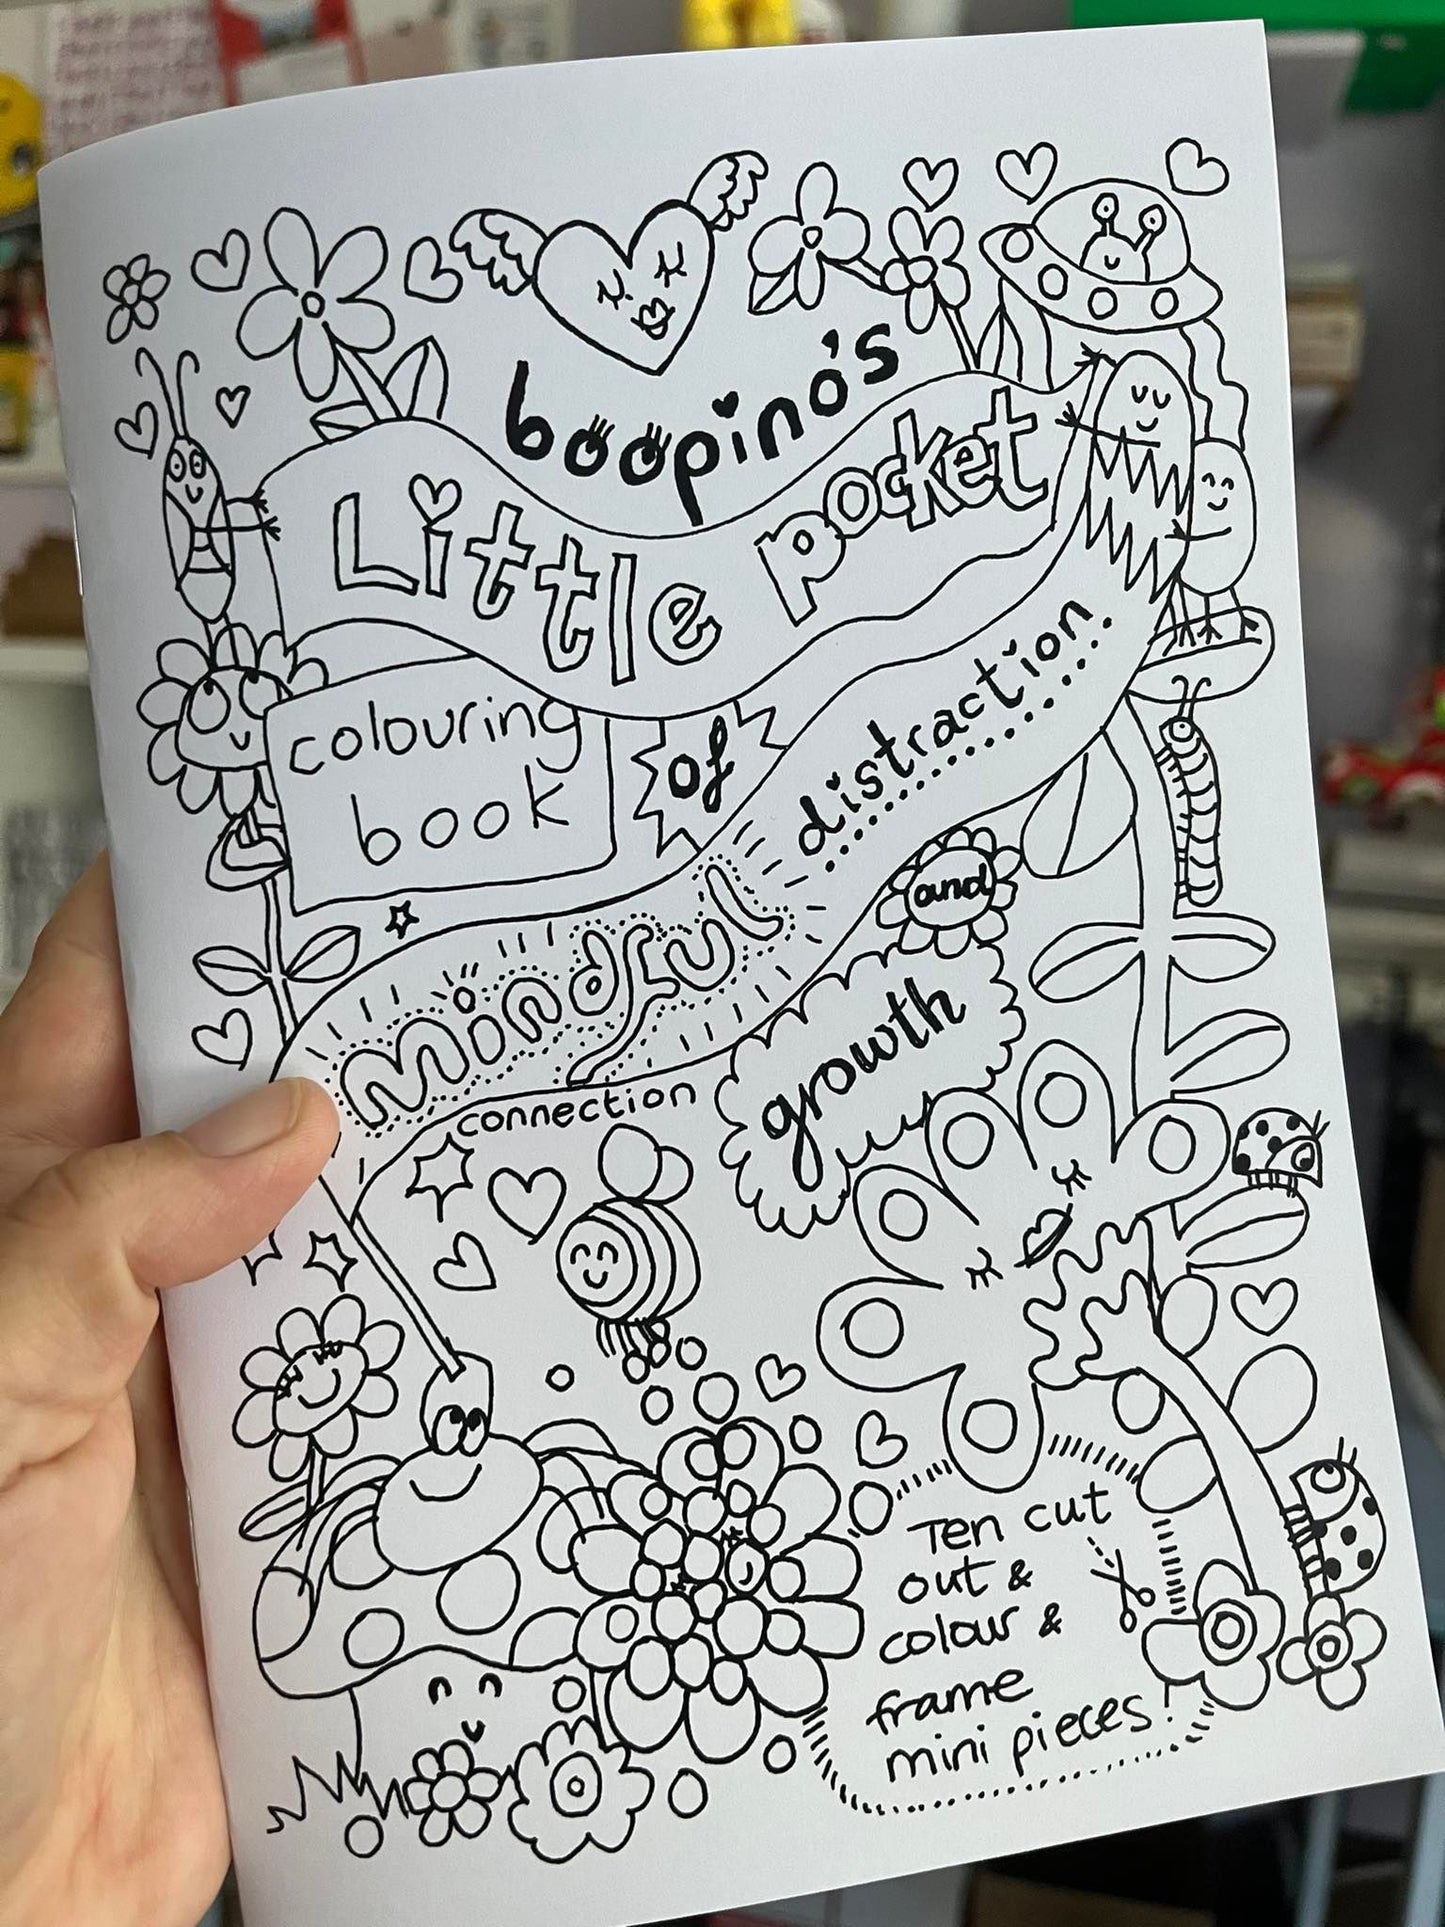 boopino's
Little pocket
colouring
book
of
mindful distraction
connection
and
growth
Ten cut
out &
colour &
frame
mini pieces!